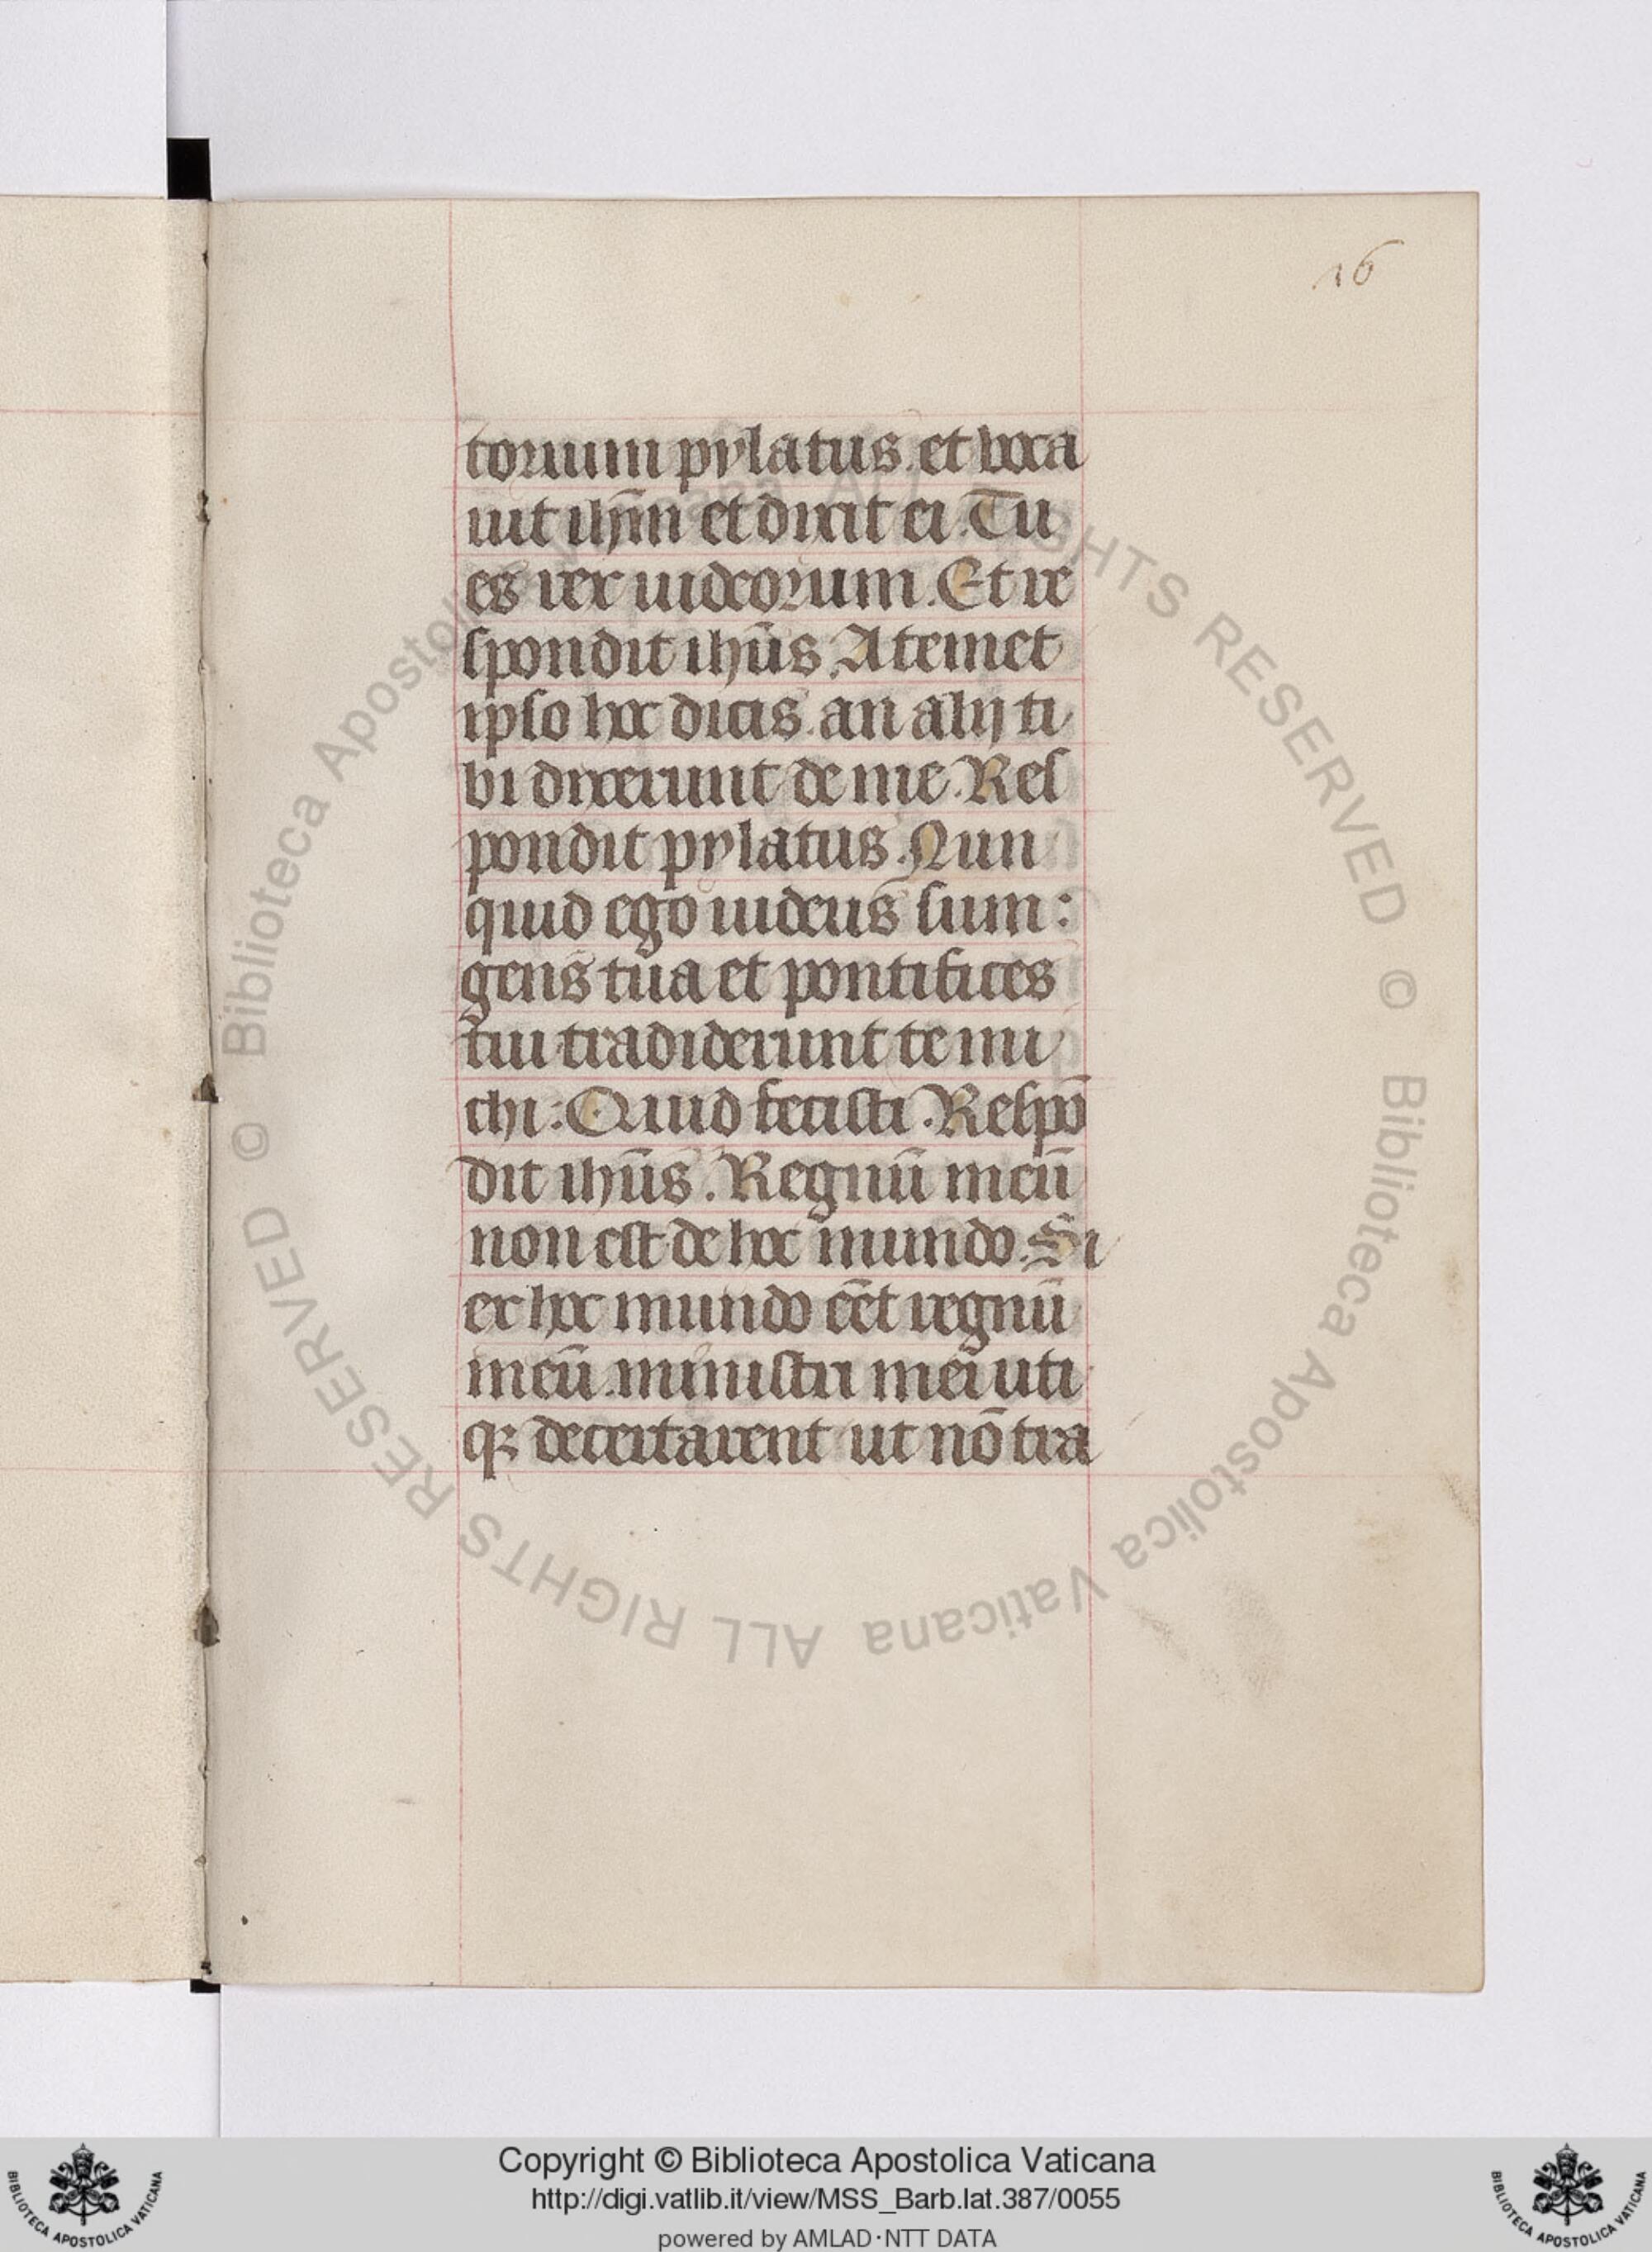 16
torium pylatus. et voca
uit ihm̄ et dixit ei. Tu
es rex iudeorum. Et re
spondit ihūs. A temet
ipso hoc dicis. an alij ti
bi dixerunt de me. Res
pondit pylatus. Nun
quid ego iudeus sum:
gens tua et pontifices
tui tradiderunt te mi
chi: Quid fecisti. Respō
dit ihūs. Regnū meū
non est de hoc mundo. Si
ex hoc mundo eēt regnū
meū. ministri mei uti
qꝫ decertarent ut nō tra
© Biblioteca Apostolica Vaticana ALL RIGHTS RESERVED © Biblioteca Apostolica Vaticana ALL RIGHTS RESERVED
Copyright © Biblioteca Apostolica Vaticana
http://digi.vatlib.it/view/MSS_Barb.lat.387/0055
powered by AMLAD·NTT DATA
BIBLIOTECA APOSTOLICA VATICANA
BIBLIOTECA APOSTOLICA VATICANA